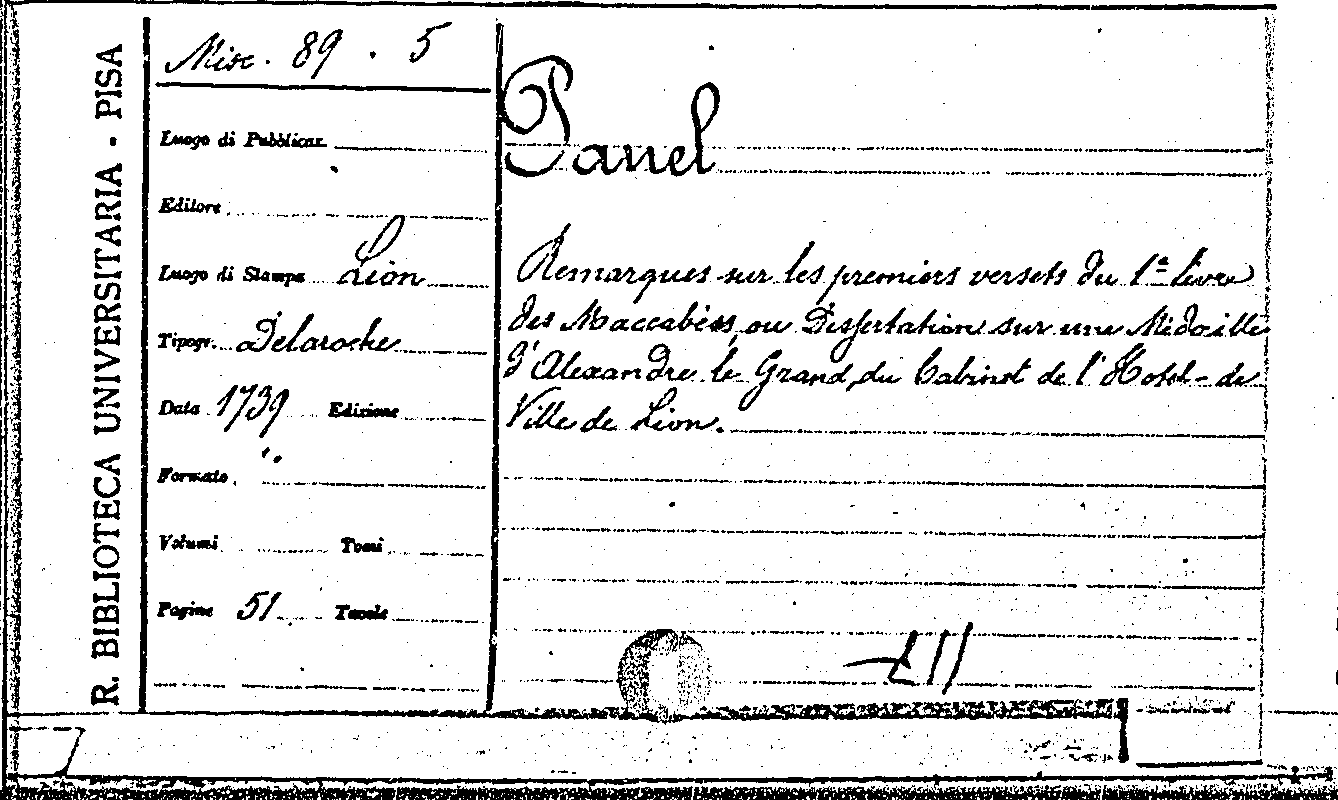 R. BIBLIOTECA UNIVERSITARIA - PISA
Misc. 89 . 5
Luogo di Pubblicaz.
Editore
Luogo di Stampa Lion
Tipogr. Delaroche
Data 1739 Edizione
Formato
Volumi Tomi
Pagine 51 Tavole
Panel
Remarques sur les premiers versets du 1er livre
des Maccabées, ou Dissertation sur une Médaille
d'Alexandre le Grand, du Cabinet de l'Hotel-de
Ville de Lion.